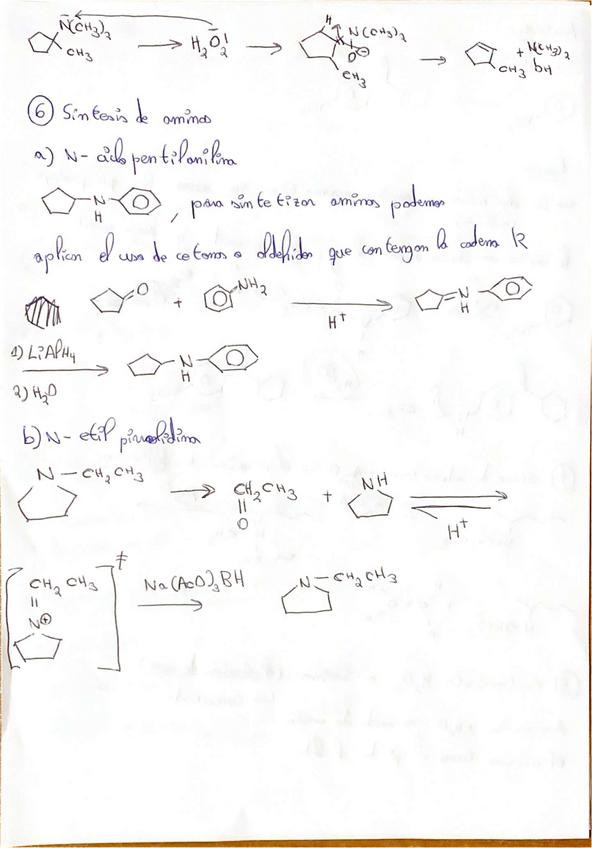 N(CH3)2
CH3
H2O2
H
N(CH3)2
O⊖
CH3
CH3
+ N(CH3)2
OH
⑥ Síntesis de aminas
a) N- ciclopentilanilina
N
H
, para sintetizar aminas podemos
aplicar el uso de cetonas o aldehidos que contengan la cadena R
O
+
NH2
H+
N
H
1) LiAlH4
2) H2O
N
H
b) N- etil pirrolidina
N - CH2CH3
CH2CH3
O
+
NH
H+
CH2 CH3
N⊕
‡
Na(AcO)3BH
N - CH2CH3